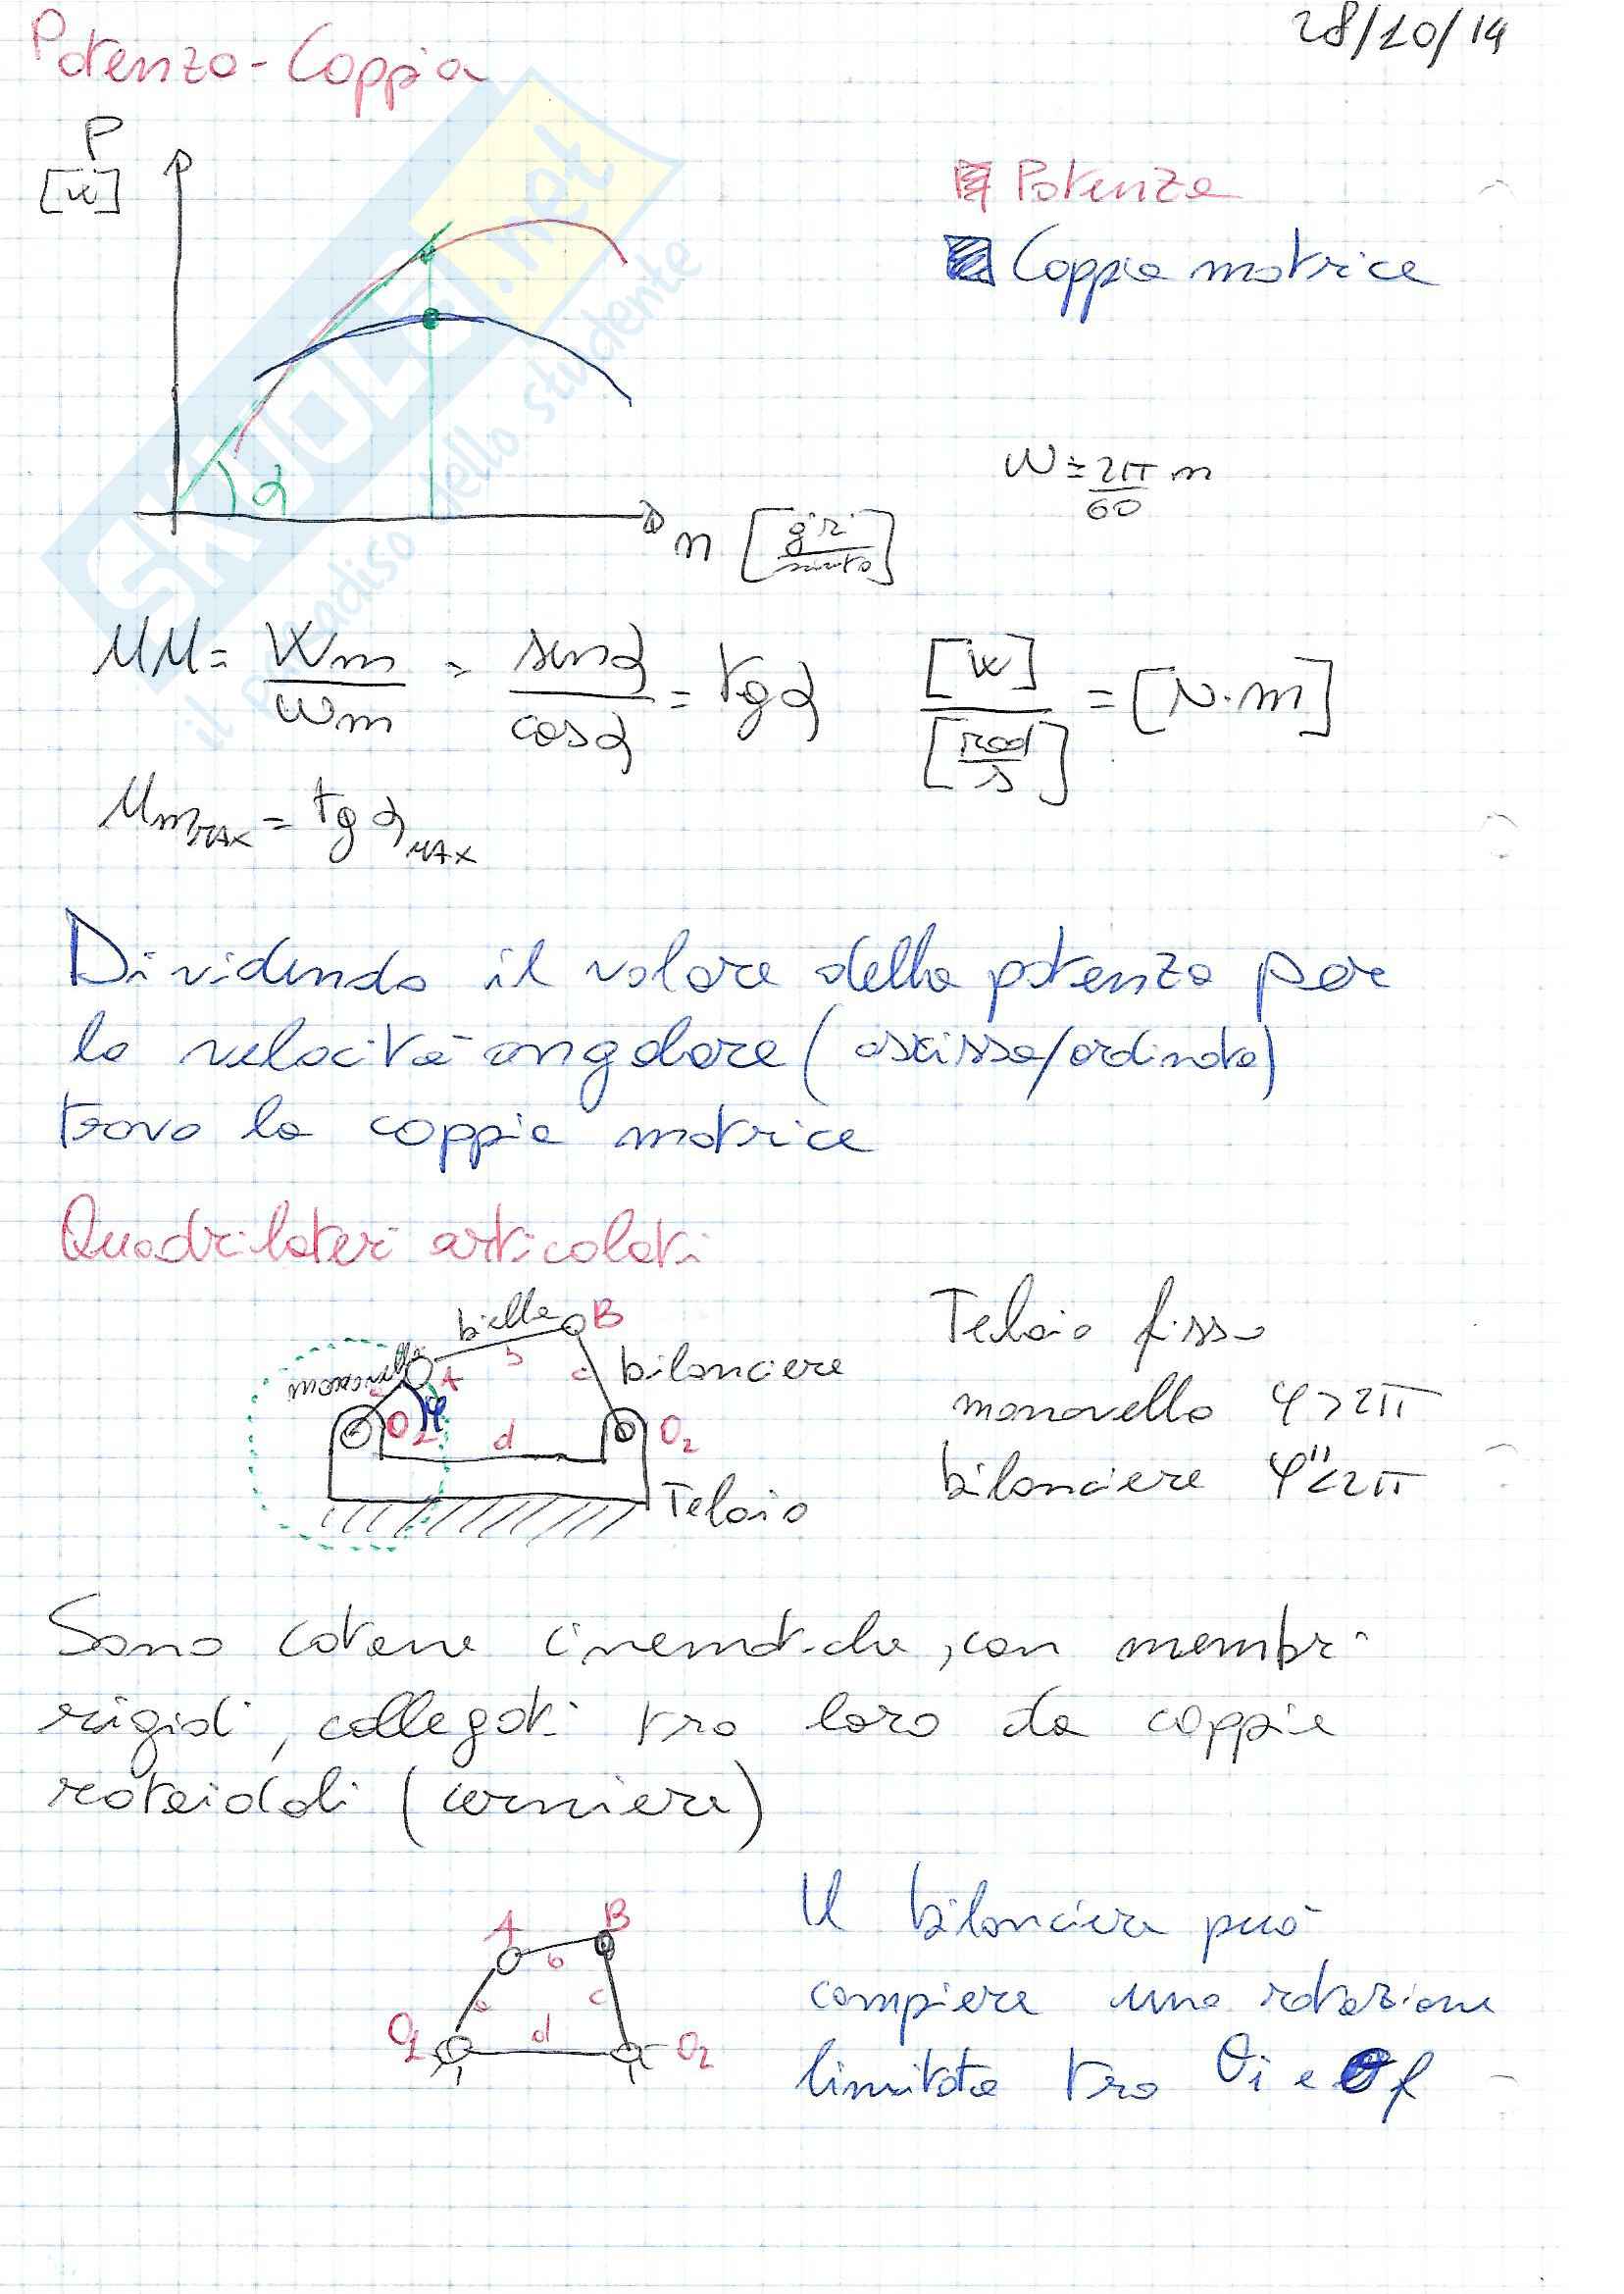 28/10/14
Potenza-Coppia
P
[W]
Potenza
Coppia motrice
α
ω = 2π/60 n
n [giri/minuto]
MM = Wm/ωm = senα/cosα = tgα [W]/[rad/s] = [N·m]
MmMAX = tgαMAX
Dividendo il valore della potenza per
la velocità angolare (ascissa/ordinata)
trovo la coppia motrice
Quadrilateri articolati
biella B
manovella A b c bilanciere
a φ
O1 d O2
Telaio
Telaio fisso
manovella φ>2π
bilanciere φ"<2π
Sono catene cinematiche, con membri
rigidi, collegati tra loro da coppie
rotoidali (cerniere)
A B
b
a c
O1 d O2
Il bilanciere può
compiere una rotazione
limitata tra θi e θf
SKUOLA.net
il paradiso dello studente